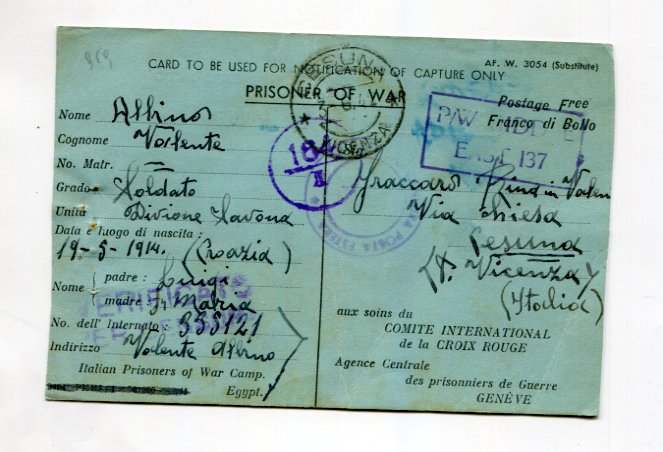 CARD TO BE USED FOR NOTIFICATION OF CAPTURE ONLY
AF. W. 3054 (Substitute)
PRISONER OF WAR
Postage Free
Franco di Bollo
Nome Albino
Cognome Valente
No. Matr. —
Grado Soldato
Unità Divione Savona
Data e luogo di nascita :
19-5-1914. (Croazia)
Nome
padre : Luigi
madre : Maria
No. dell' Internato : 335121
Indirizzo Valente Albino
Italian Prisoners of War Camp.
Egypt.
P/W
EAST 137
LESUNA
VICENZA
POSTA ESTERA
Rina in
Via Chiesa
Lesuna
Vicenza
(Italia)
aux soins du
COMITE INTERNATIONAL
de la CROIX ROUGE
Agence Centrale
des prisonniers de Guerre
GENÈVE